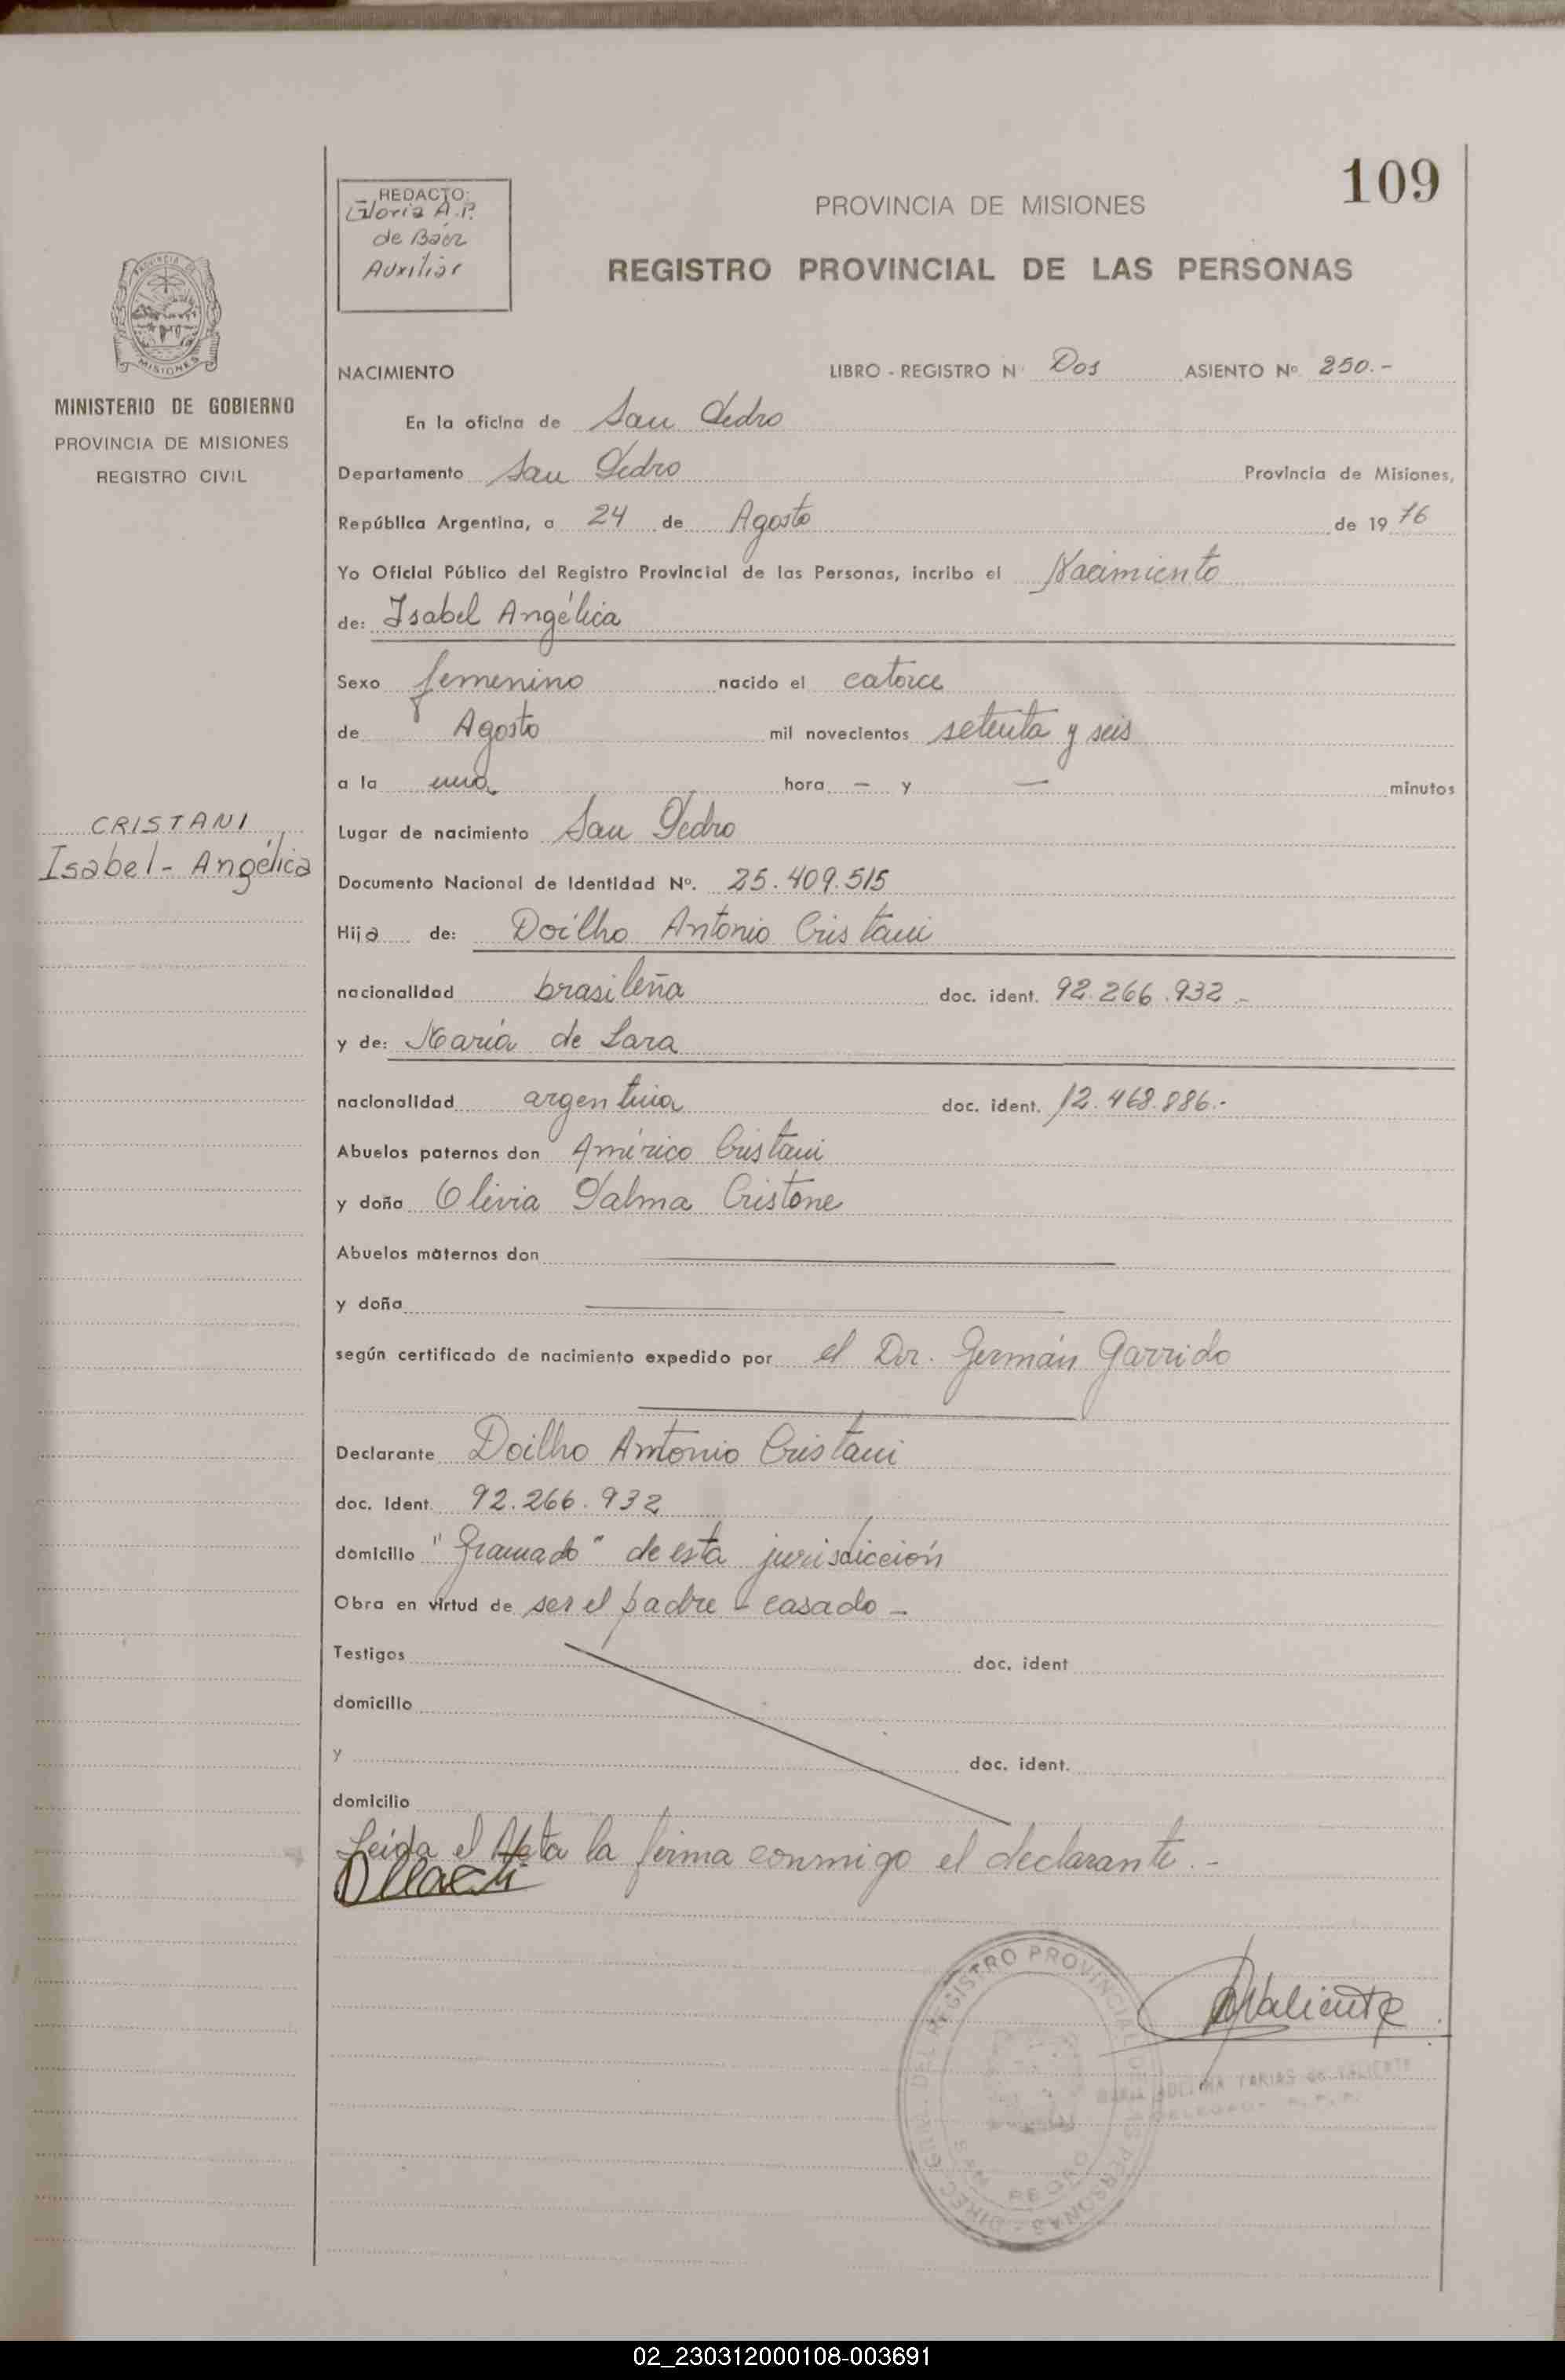 109
REDACTO:
Gloria A.P.
de Báez
Auxiliar
PROVINCIA DE MISIONES
REGISTRO PROVINCIAL DE LAS PERSONAS
MISIONES
MINISTERIO DE GOBIERNO
PROVINCIA DE MISIONES
REGISTRO CIVIL
NACIMIENTO LIBRO - REGISTRO Nº Dos ASIENTO Nº 250.-
En la oficina de San Pedro
Departamento San Pedro Provincia de Misiones,
República Argentina, a 24 de Agosto de 19 76
Yo Oficial Público del Registro Provincial de las Personas, incribo el Nacimiento
de: Isabel Angélica
Sexo femenino nacido el catorce
de Agosto mil novecientos setenta y seis
a la una hora - y — minutos
CRISTANI
Isabel - Angélica
Lugar de nacimiento San Pedro
Documento Nacional de Identidad Nº. 25.409.515
Hija de: Doilho Antonio Cristani
nacionalidad brasileña doc. ident. 92.266.932 -
y de: María de Lara
nacionalidad argentina doc. ident. 12.468.886.-
Abuelos paternos don Américo Cristani
y doña Olivia Palma Cristone
Abuelos maternos don
y doña
según certificado de nacimiento expedido por el Dr. Germán Garrido
Declarante Doilho Antonio Cristani
doc. Ident. 92.266.932
domicilio "Gramado" de esta jurisdicción
Obra en virtud de ser el padre - casado -
Testigos doc. ident
domicilio
y doc. ident.
domicilio
Leida el Acta la firma conmigo el declarante.-
Valiente
DIREC. GRAL. DEL REGISTRO PROVINCIAL DE LAS PERSONAS
SAN PEDRO
MARIA ADELINA FARIAS de VALIENTE
DELEGADA R.P.P.
02_230312000108-003691